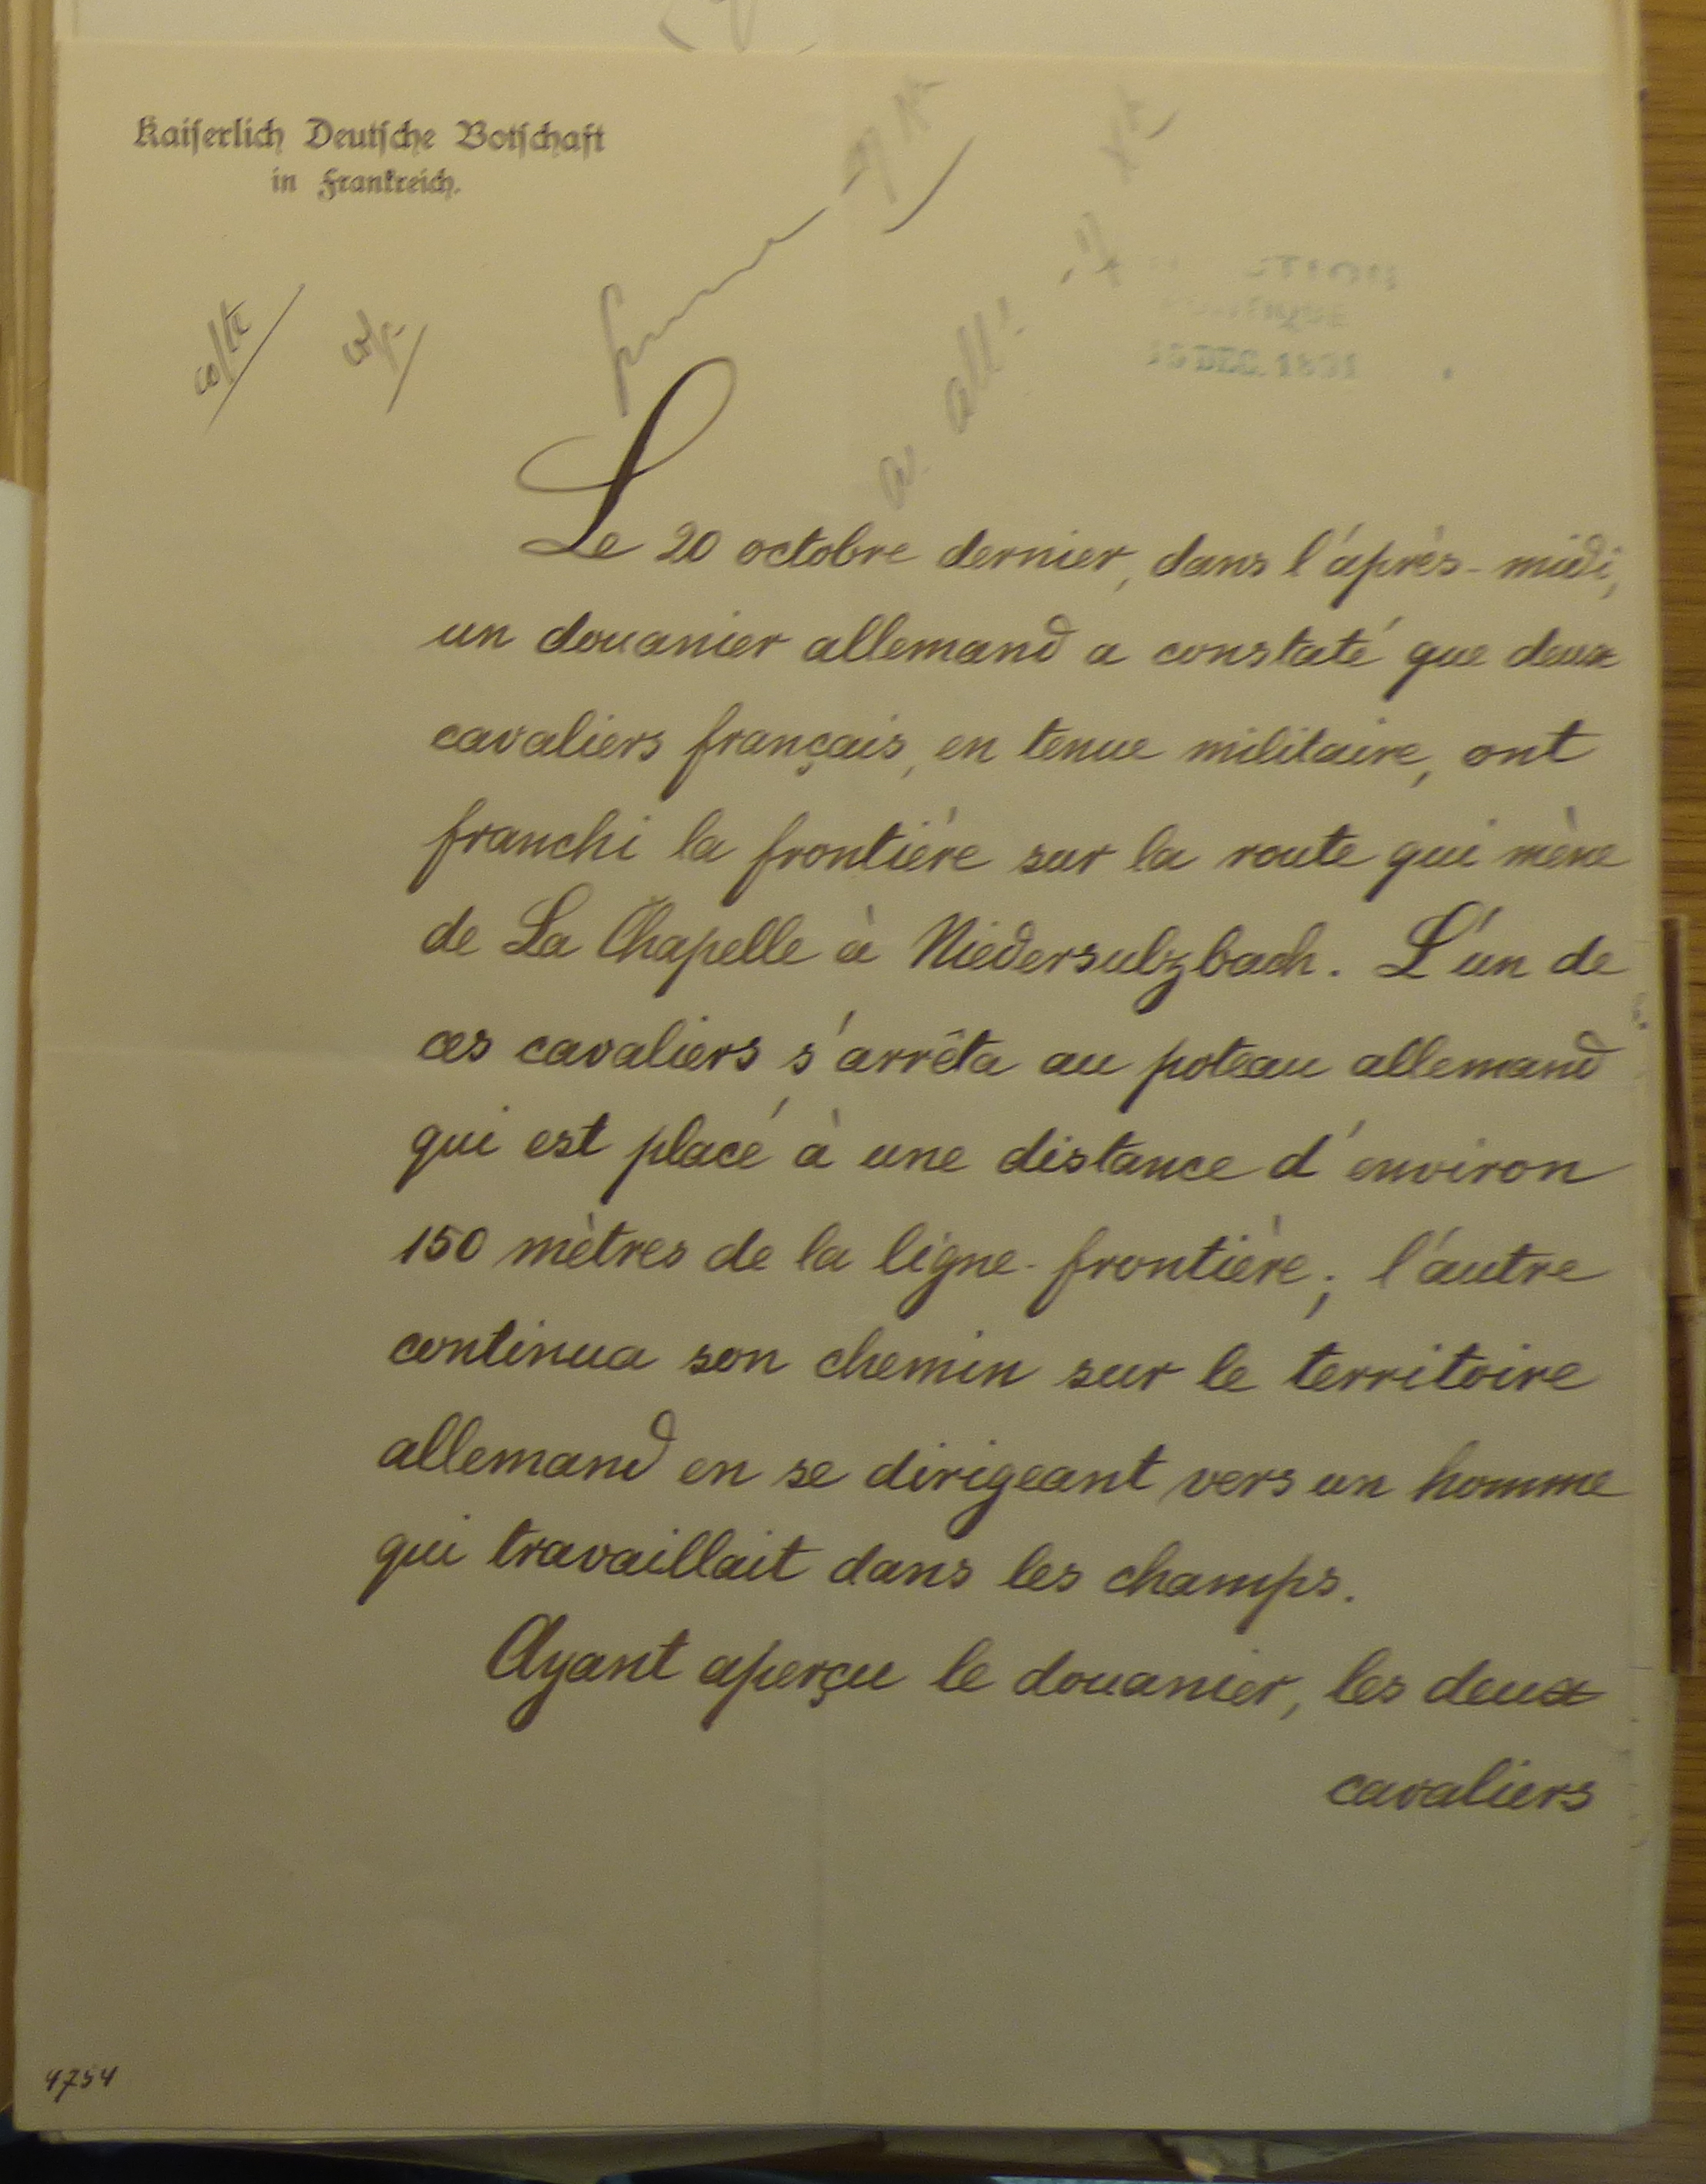 Kaiserlich Deutsche Botschaft
in Frankreich.
DEC. 1891
Le 20 octobre dernier, dans l'après-midi,
un douanier allemand a constaté que deux
cavaliers français, en tenue militaire, ont
franchi la frontière sur la route qui mène
de La Chapelle à Niedersulzbach. L'un de
ces cavaliers s'arrêta au poteau allemand
qui est placé à une distance d'environ
150 mètres de la ligne-frontière; l'autre
continua son chemin sur le territoire
allemand en se dirigeant vers un homme
qui travaillait dans les champs.
Ayant aperçu le douanier, les deux
cavaliers
4754